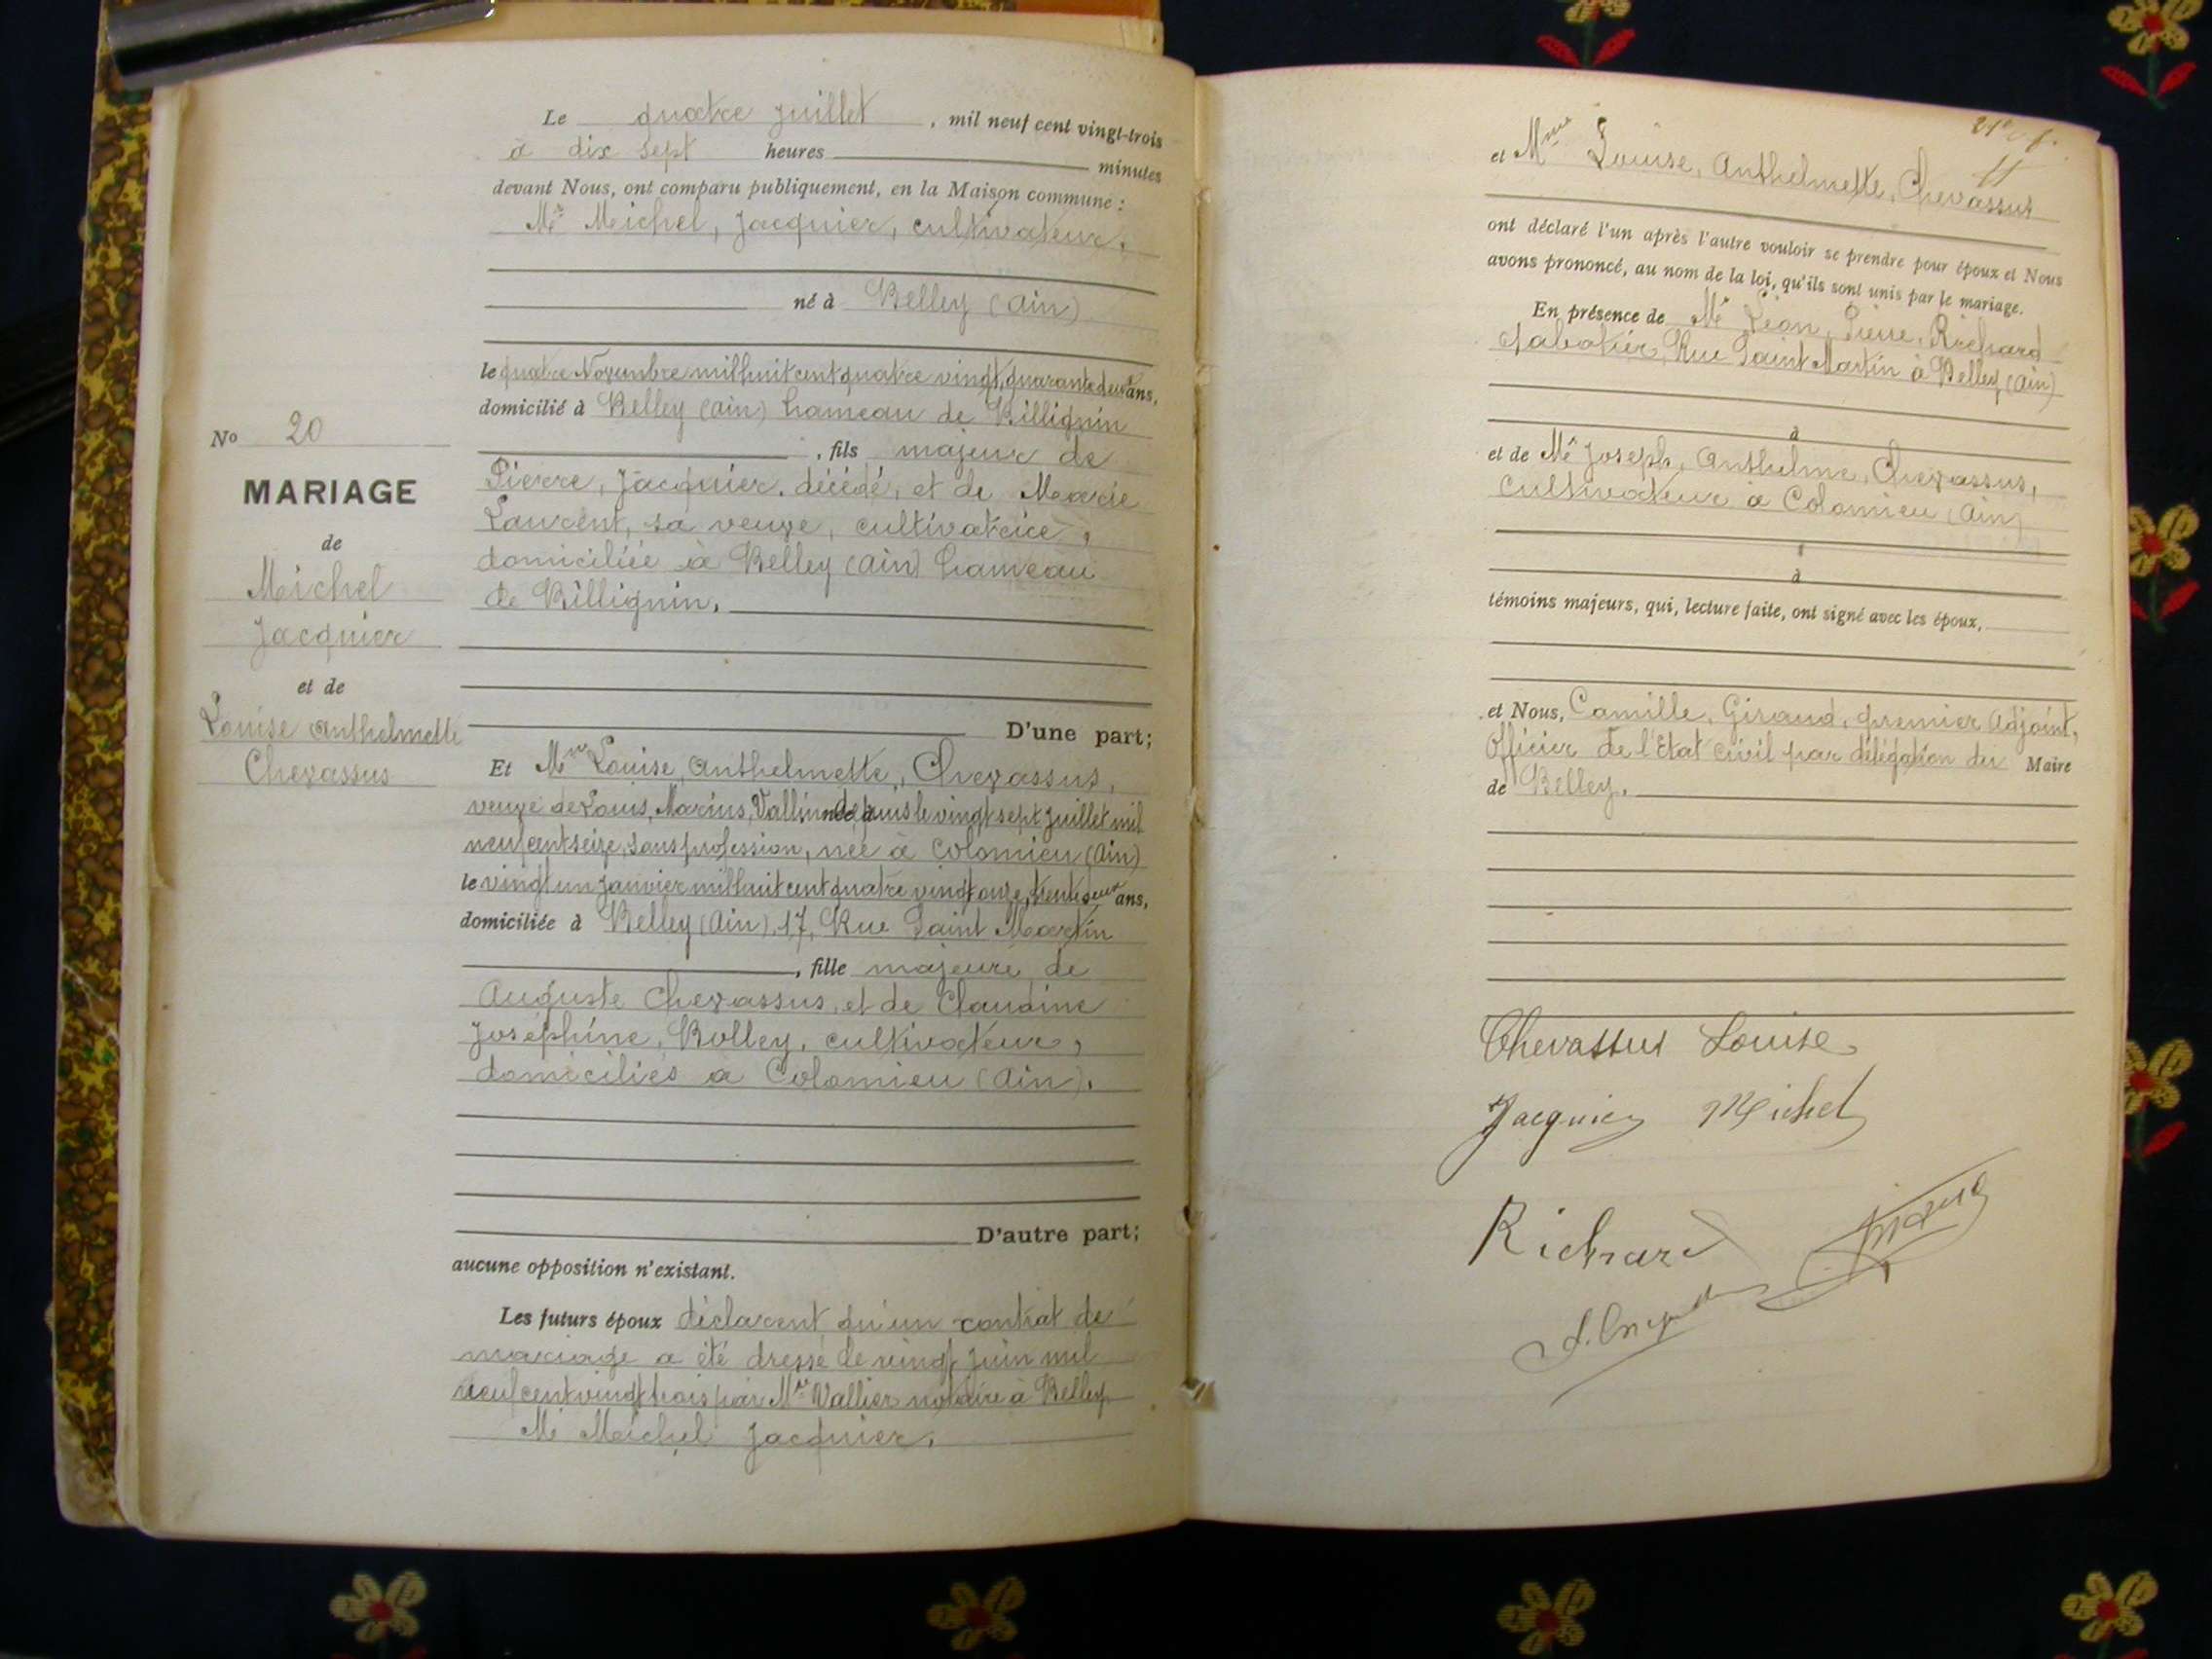 Le quatre juillet, mil neuf cent vingt-trois
à dix sept heures minutes
devant Nous, ont comparu publiquement, en la Maison commune :
Mr Michel, Jacquier, cultivateur,
né à Belley (Ain)
le quatre Novembre mil huit cent quatre vingt, quarante deux ans,
domicilié à Belley (Ain) hameau de Billignin
, fils majeur de
Pierre, Jacquier, décédé, et de Marie
Laurent, sa veuve, cultivatrice,
domiciliée à Belley (Ain) hameau
de Billignin.
No 20
MARIAGE
de
Michel
Jacquier
et de
Louise Anthelmette
Chevassus
D'une part;
Et Mme Louise, Anthelmette, Chevassus,
veuve de Louis, Marius, Vallin depuis le vingt sept juillet mil
neuf cent seize, sans profession, née à Colomieu (Ain)
le vingt un janvier mil huit cent quatre vingt onze, trente deux ans,
domiciliée à Belley (Ain), 17, Rue Saint Martin
, fille majeure de
Auguste Chevassus, et de Claudine
Joséphine, Bolley, cultivateur,
domiciliés à Colomieu (Ain).
D'autre part;
aucune opposition n'existant.
Les futurs époux déclarent qu'un contrat de
mariage a été dressé le vingt juin mil
neuf cent vingt trois par Me Vallier notaire à Belley
Mr Michel Jacquier.
et Mme Louise, Anthelmette, Chevassus
ont déclaré l'un après l'autre vouloir se prendre pour époux et Nous
avons prononcé, au nom de la loi, qu'ils sont unis par le mariage.
En présence de Mr Léon, Pierre, Richard
sabotier, Rue Saint Martin à Belley (Ain)
à
et de Mr Joseph, Anthelme, Chevassus,
cultivateur à Colomieu (Ain)
à
témoins majeurs, qui, lecture faite, ont signé avec les époux,
et Nous, Camille, Giraud, premier Adjoint,
Officier de l'Etat civil par délégation du Maire
de Belley.
Chevassus Louise
Jacquier Michel
Richard